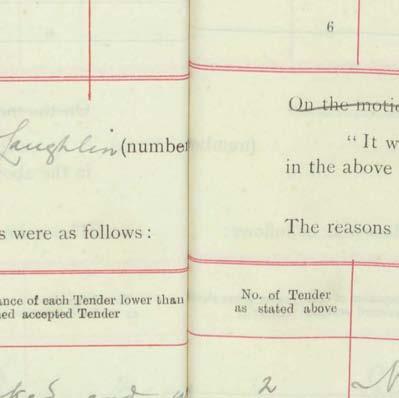 6
Laughlin (number
s were as follows :
ance of each Tender lower than
ed accepted Tender
On the motio
" It w
in the above
The reasons
No. of Tender
as stated above
2